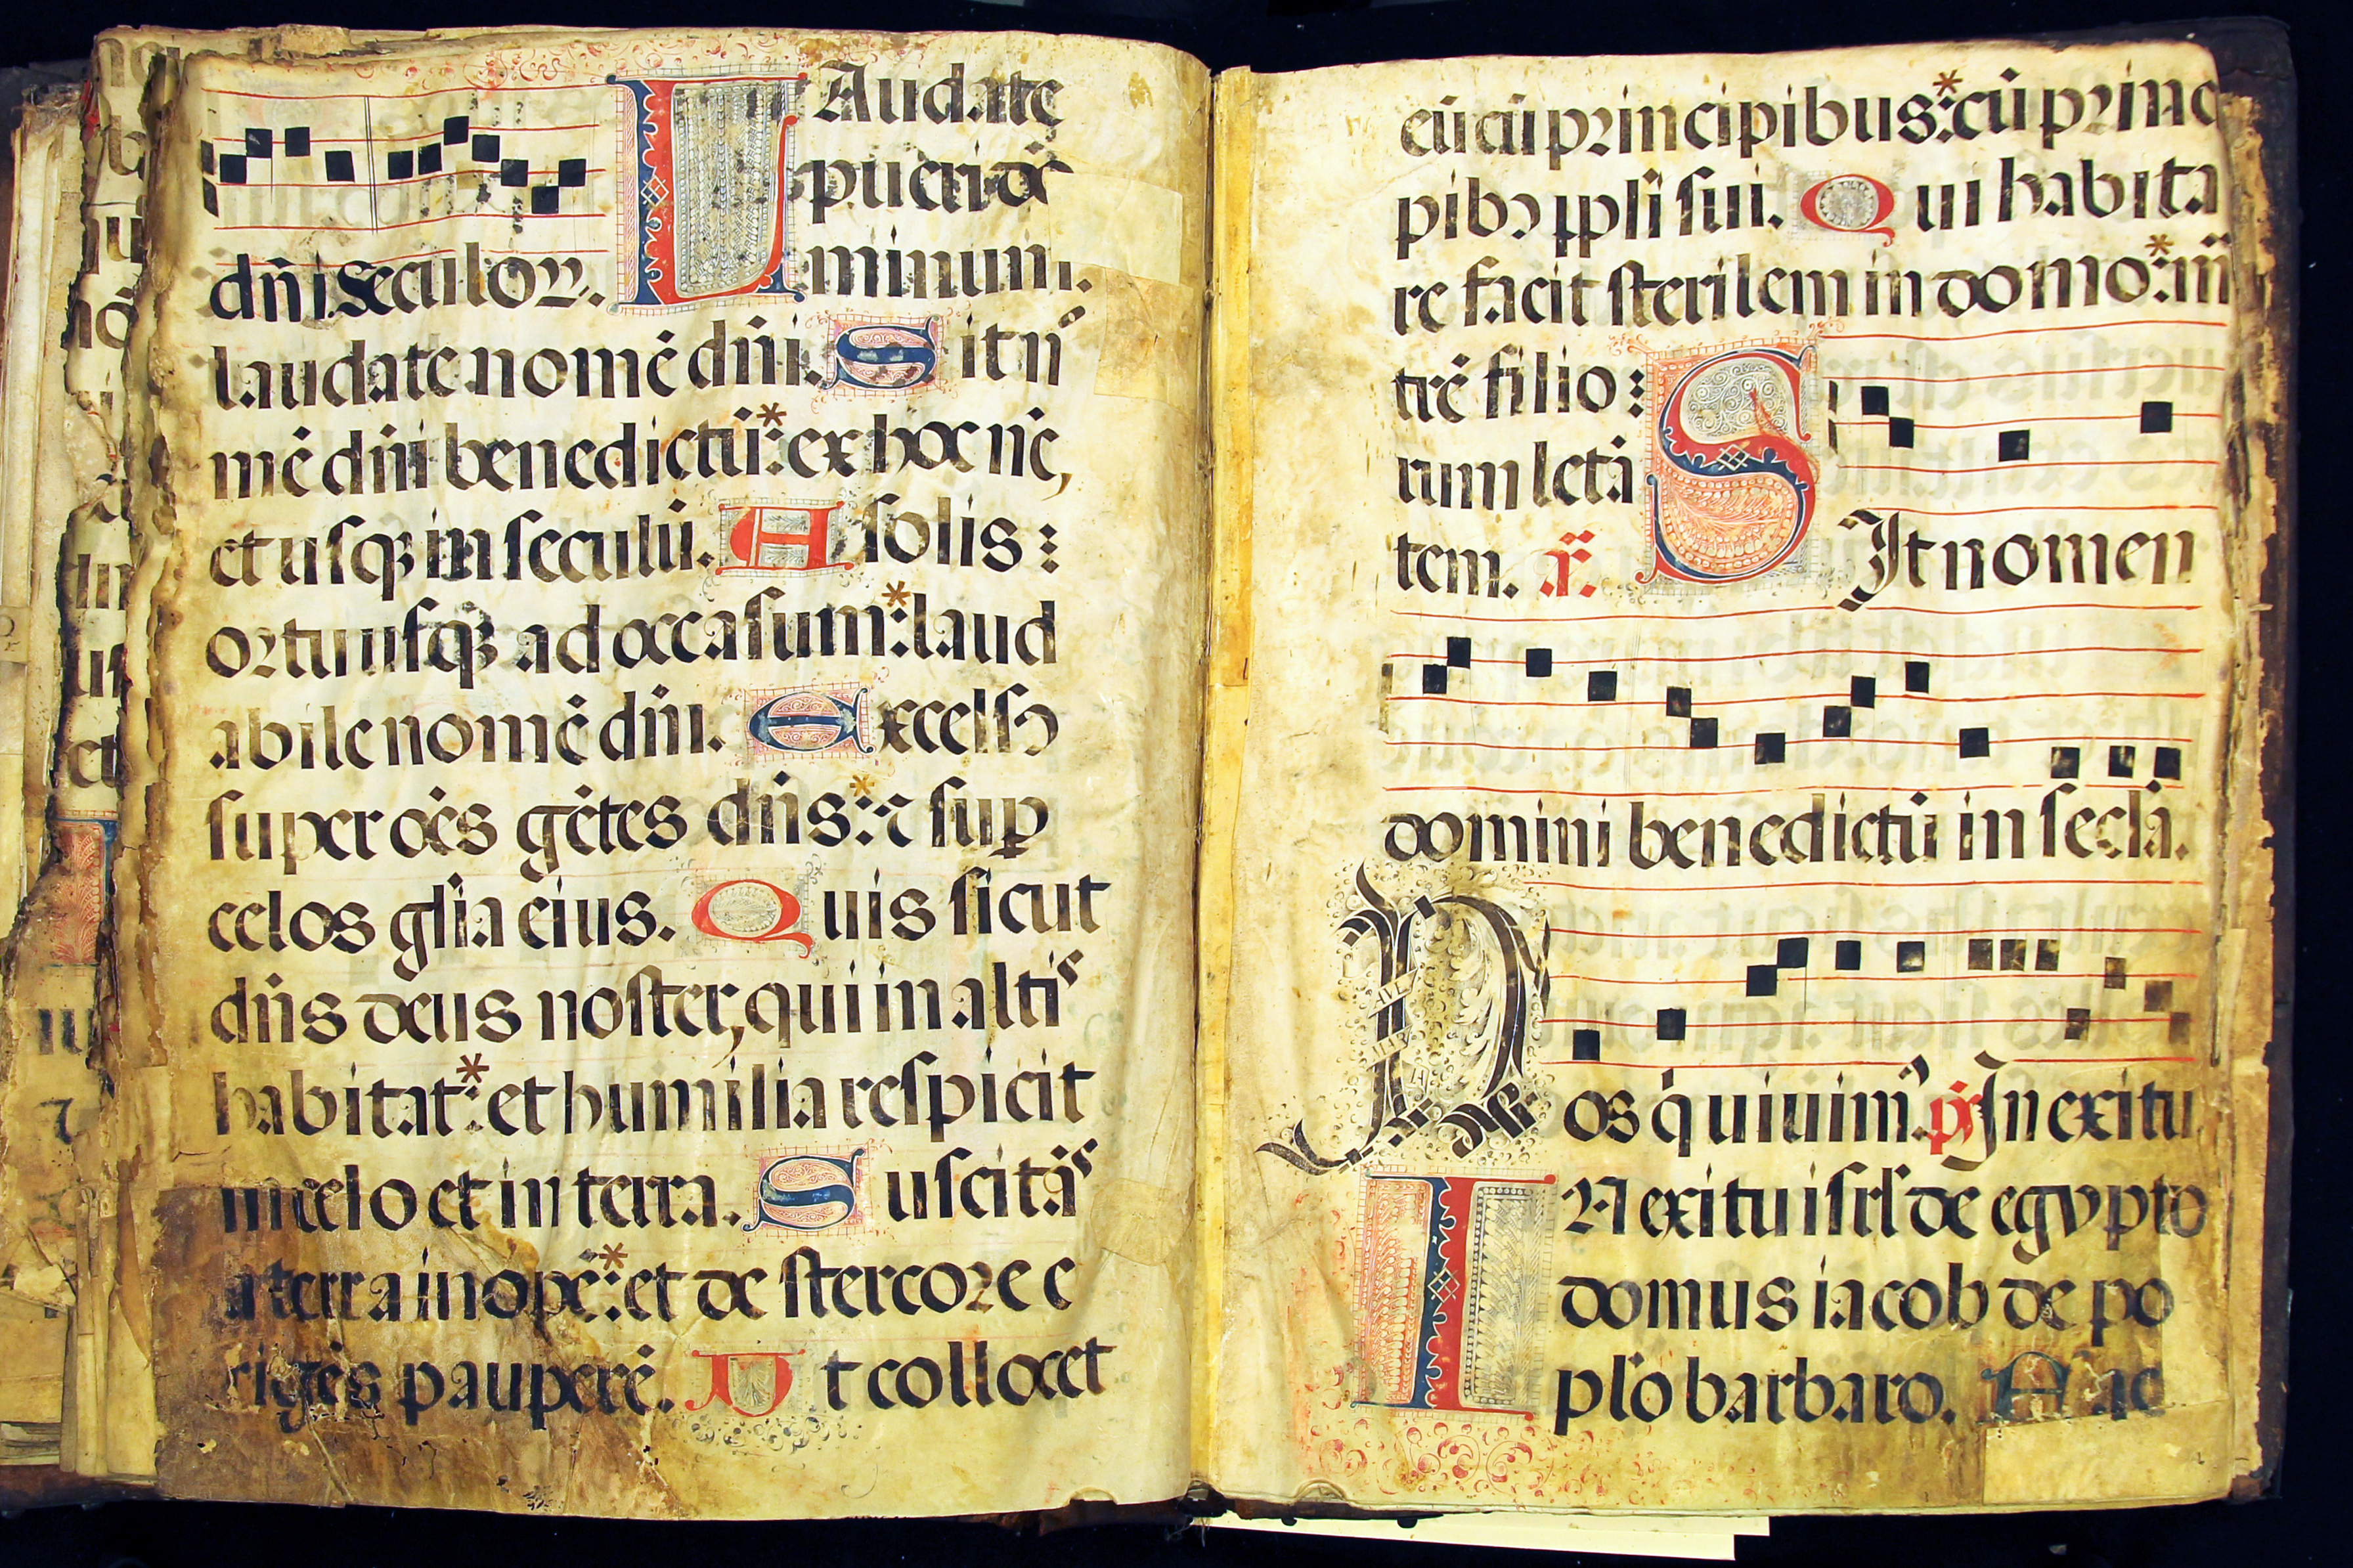 LAudate
pueri do
dñi seculoꝝ. minum.
laudate nomē dñi. Sit nꝰ
mē dñi benedictū: * ex hoc nc̄,
et usqꝫ in seculū. A solis :
ortu usqꝫ ad occasum: * laud
abile nomē dñi. Excelsꝰ
super oēs gētes dñs: * ⁊ suꝑ
celos gl̄ia eius. Quis sicut
dñs deus noster, qui in altis
habitat: * et humilia respicit
in celo et in terra. Suscitās
a terra inopē: * et de stercore e
rigēs pauperē. Vt collocet
eū cū principibus: * cū princ
pibꝰ ppl̄i sui. Qui habita
re facit sterilem in domo: * m̄
trē filio:
rum letā
tem. r̄. SIt nomen
domini benedictū in secl̄a.
Nos q̇ uiuimꝰ. ps̄ In exitu
IN exitu isrl̄ de egypto
domus iacob de po
pl̄o barbaro. Fac